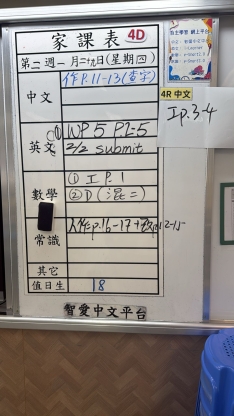 家課表 4D
第二週 一月二十九日(星期四)
中文 作P.11-13(查字)
英文 ① WP5 P2-5
2/2 submit
數學 ① 工P.1
② D(混二)
常識
其它
值日生 18
智愛中文平台
自主學習 網上平台
4R 中文
工p.3-4